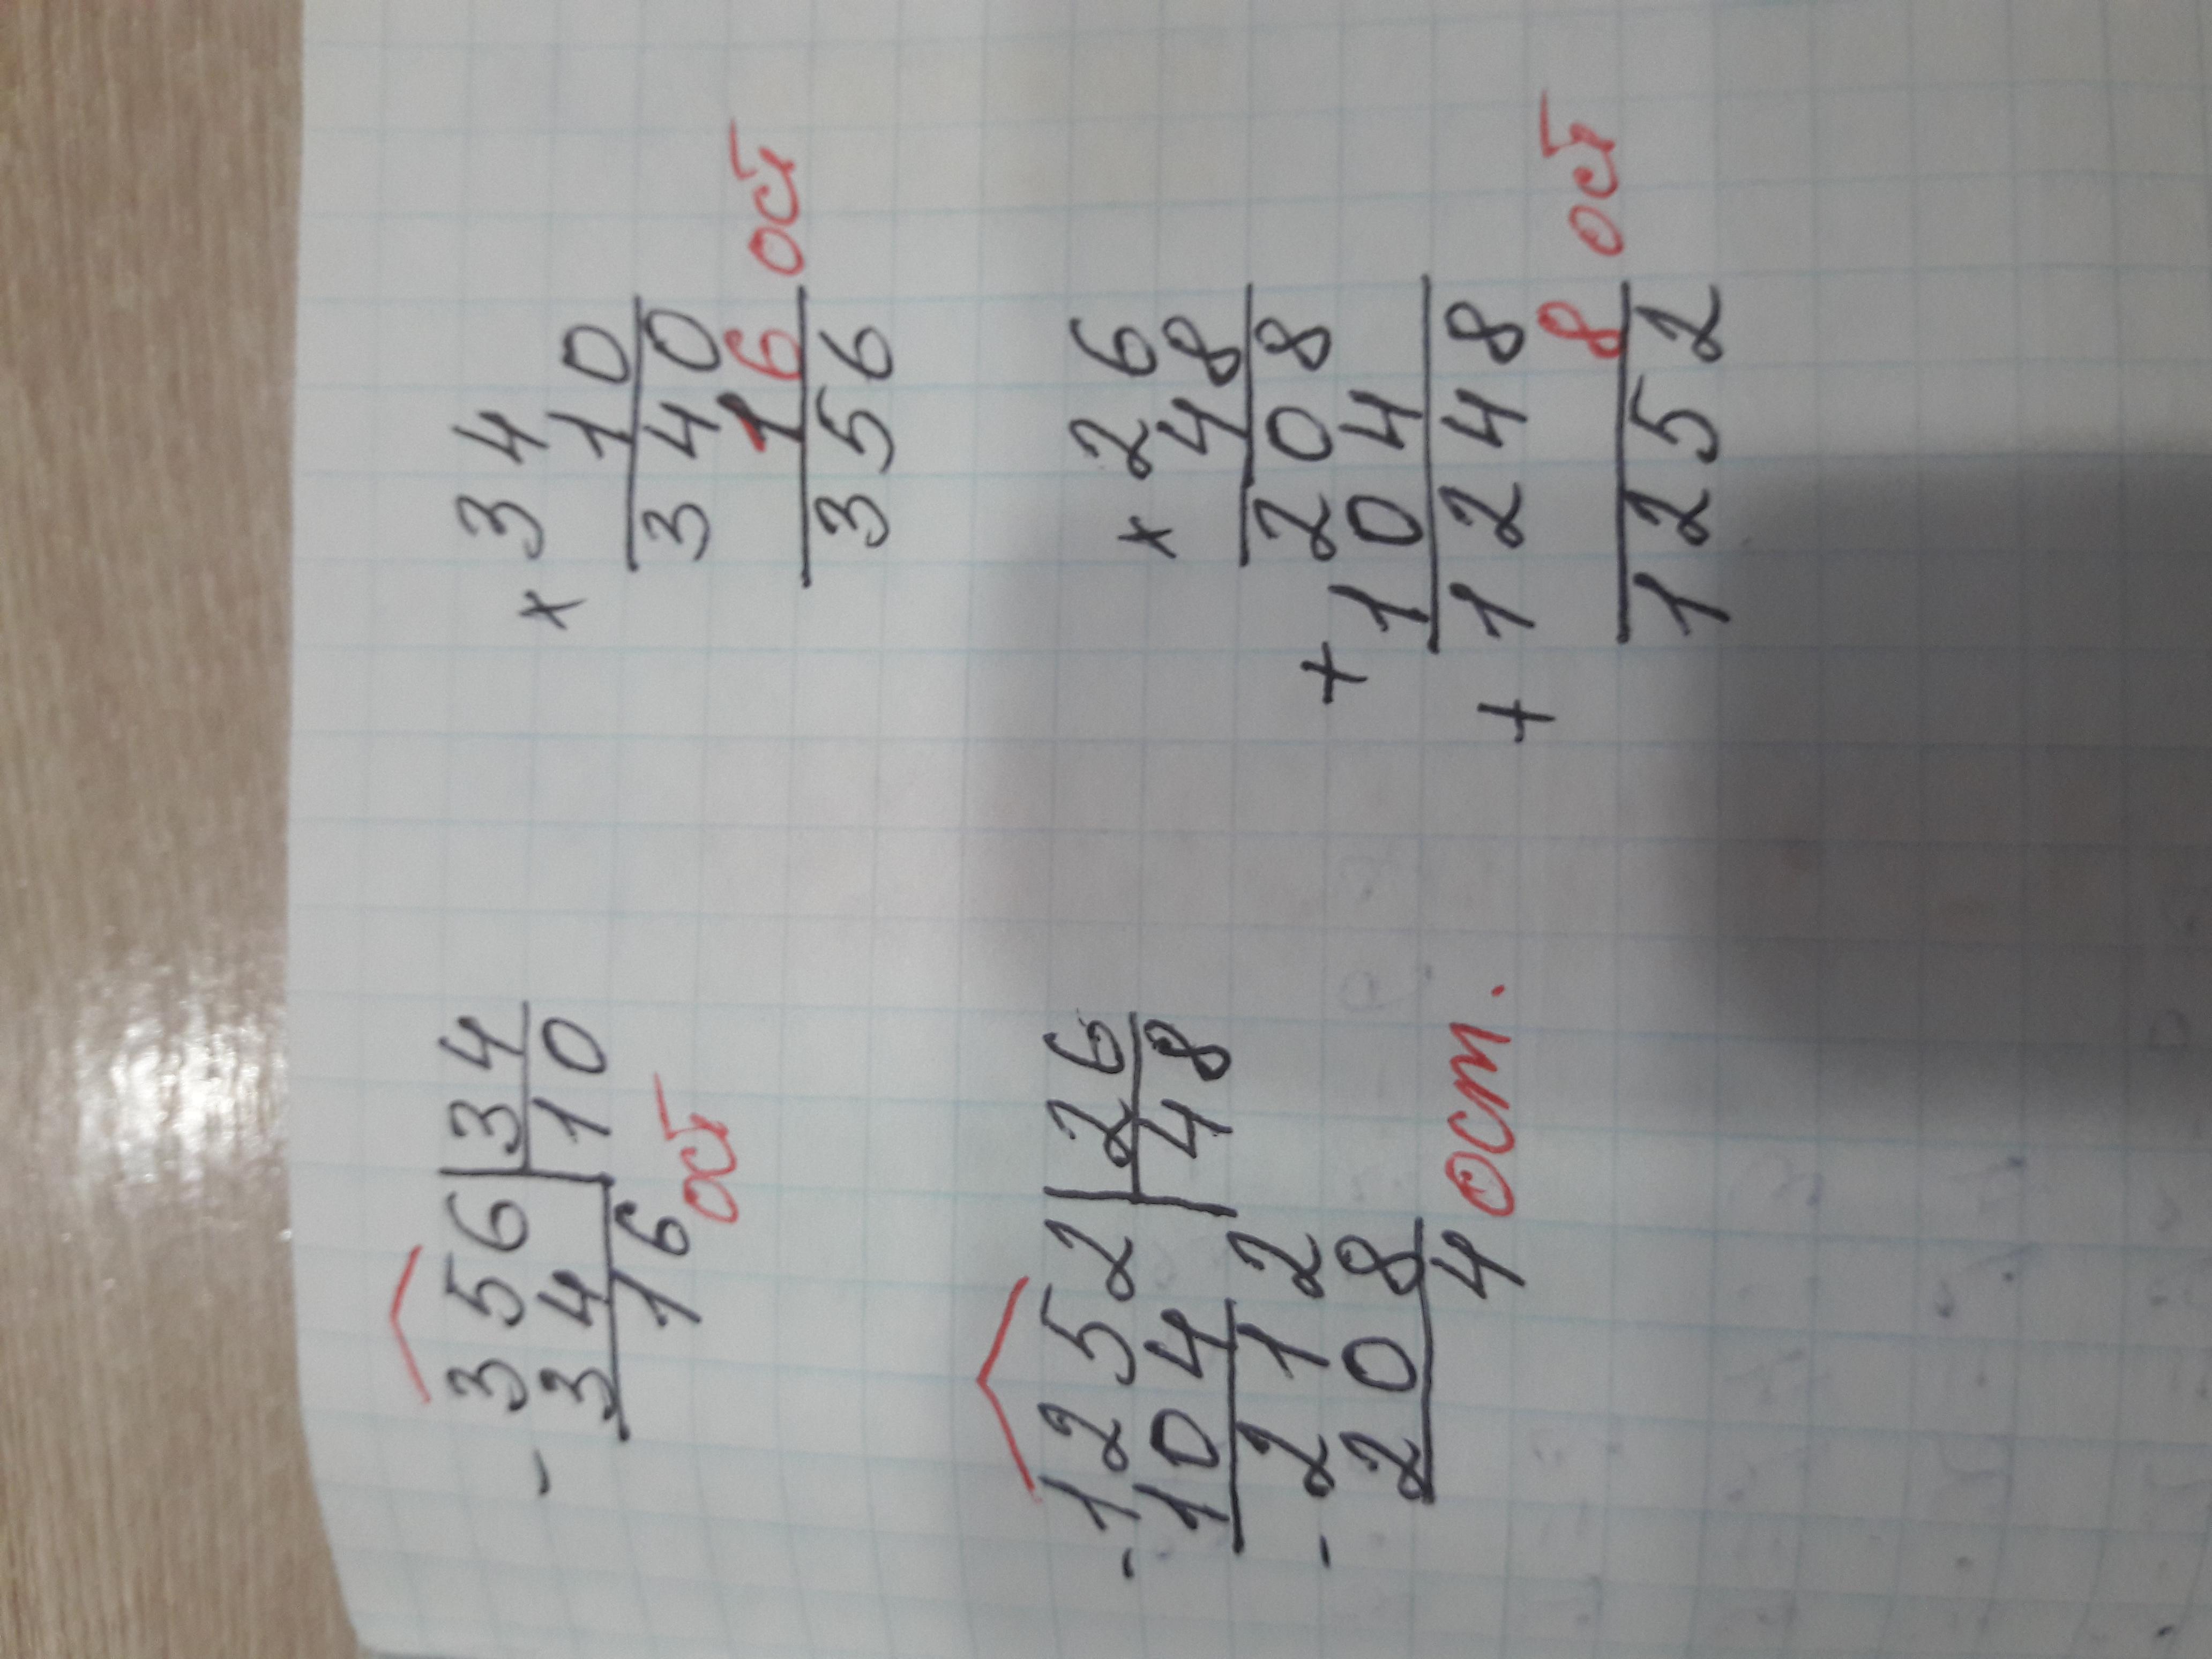 - 356 | 34
34 | 10
16
ост
× 34
10
340
16 ост
356
- 1252 | 26
104 | 48
- 212
208
4 ост.
× 26
48
208
+ 104
+ 1248
8 ост
1252